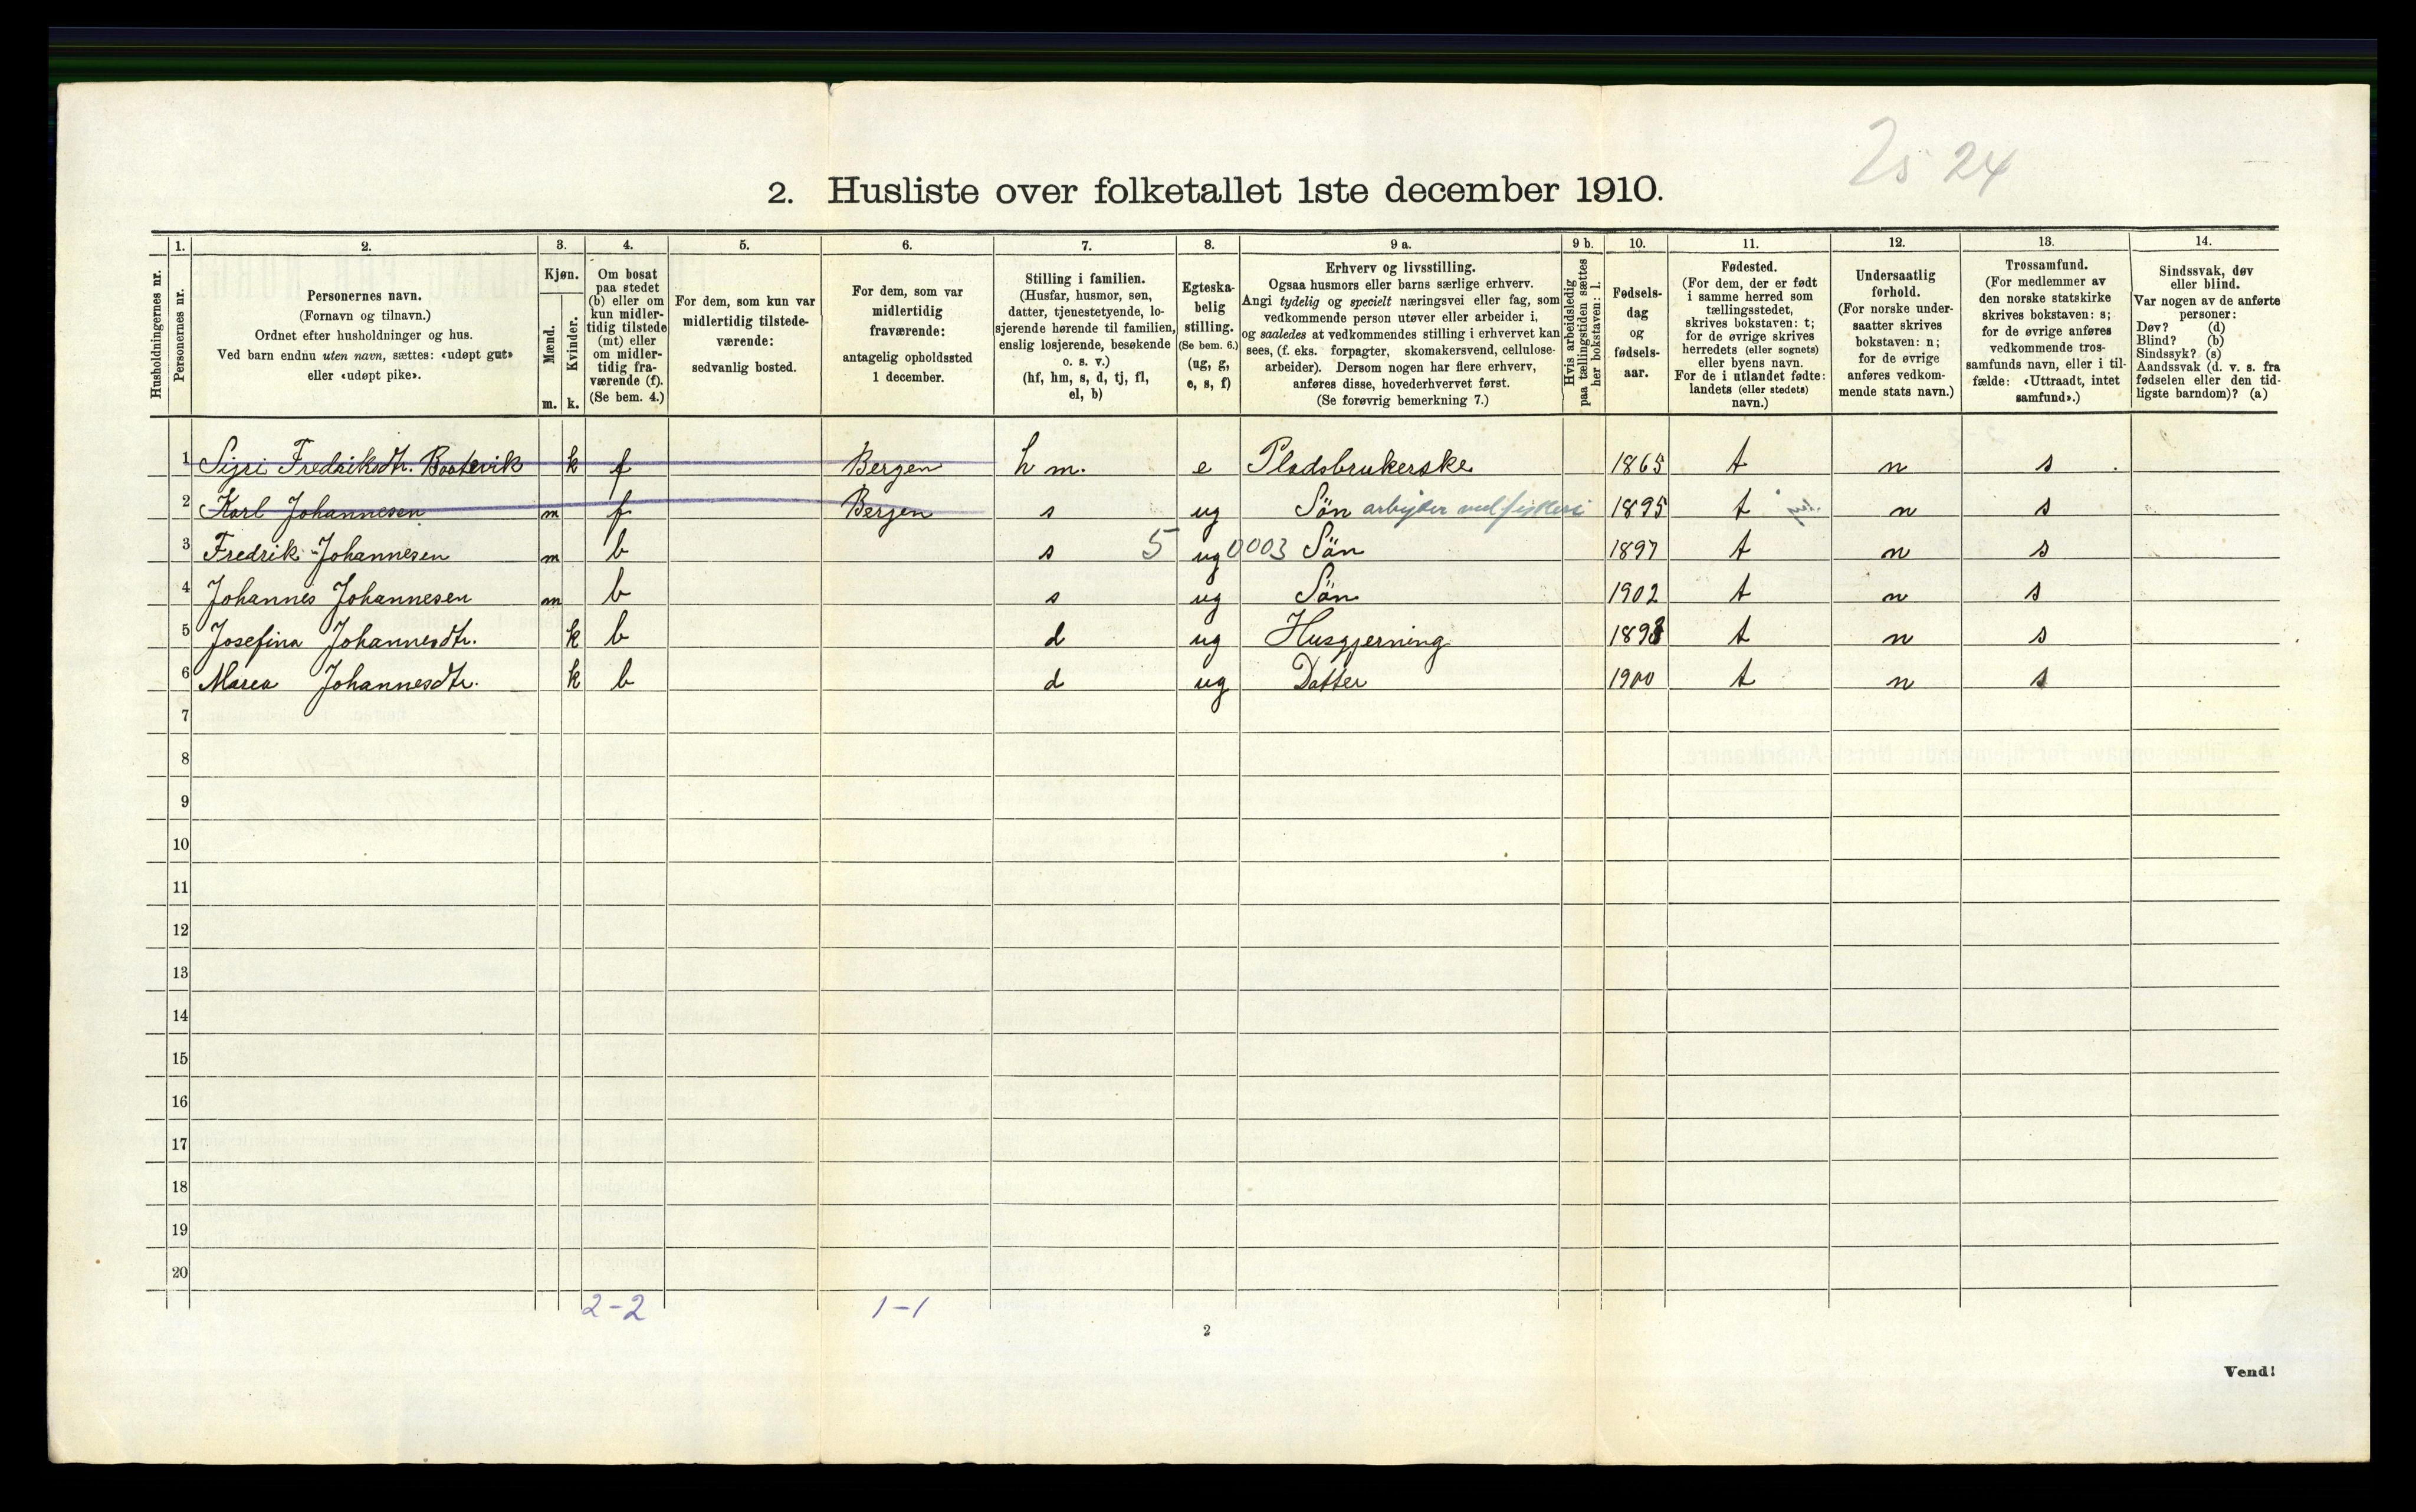 2. Husliste over folketallet 1ste december 1910.
25 24
Husholdningernes nr.
1.
Personernes nr.
2.
Personernes navn.
(Fornavn og tilnavn.)
Ordnet efter husholdninger og hus.
Ved barn endnu uten navn, sættes: «udøpt gut»
eller «udøpt pike».
3.
Kjøn.
Mænd.
m.
Kvinder.
k.
4.
Om bosat
paa stedet
(b) eller om
kun midler-
tidig tilstede
(mt) eller
om midler-
tidig fra-
værende (f).
(Se bem. 4.)
5.
For dem, som kun var
midlertidig tilstede-
værende:
sedvanlig bosted.
6.
For dem, som var
midlertidig
fraværende:
antagelig opholdssted
1 december.
7.
Stilling i familien.
(Husfar, husmor, søn,
datter, tjenestetyende, lo-
sjerende hørende til familien,
enslig losjerende, besøkende
o. s. v.)
(hf, hm, s, d, tj, fl,
el, b)
8.
Egteska-
belig
stilling.
(Se bem. 6.)
(ug, g,
e, s, f)
9 a.
Erhverv og livsstilling.
Ogsaa husmors eller barns særlige erhverv.
Angi tydelig og specielt næringsvei eller fag, som
vedkommende person utøver eller arbeider i,
og saaledes at vedkommendes stilling i erhvervet kan
sees, (f. eks. forpagter, skomakersvend, cellulose-
arbeider). Dersom nogen har flere erhverv,
anføres disse, hovederhvervet først.
(Se forøvrig bemerkning 7.)
9 b.
Hvis arbeidsledig
paa tællingstiden sættes
her bokstaven: l.
10.
Fødsels-
dag
og
fødsels-
aar.
11.
Fødested.
(For dem, der er født
i samme herred som
tællingsstedet,
skrives bokstaven: t;
for de øvrige skrives
herredets (eller sognets)
eller byens navn.
For de i utlandet fødte:
landets (eller stedets)
navn.)
12.
Undersaatlig
forhold.
(For norske under-
saatter skrives
bokstaven: n;
for de øvrige
anføres vedkom-
mende stats navn.)
13.
Trossamfund.
(For medlemmer av
den norske statskirke
skrives bokstaven: s;
for de øvrige anføres
vedkommende tros-
samfunds navn, eller i til-
fælde: «Uttraadt, intet
samfund».)
14.
Sindssvak, døv
eller blind.
Var nogen av de anførte
personer:
Døv? (d)
Blind? (b)
Sindssyk? (s)
Aandssvak (d. v. s. fra
fødselen eller den tid-
ligste barndom)? (a)
1 Sigri Fredriksdtr. Baatevik k f Bergen hm. e Pladsbrukerske 1865 t n s
2 Karl Johannesen m f Bergen s ug Søn arbejder ved fiskeri 1895 t n s
3 Fredrik Johannesen m b s 5 ug 0003 Søn 1897 t n s
4 Johannes Johannesen m b s ug Søn 1902 t n s
5 Josefina Johannesdtr. k b d ug Husgjerning 1893 t n s
6 Marea Johannesdtr. k b d ug Datter 1900 t n s
7
8
9
10
11
12
13
14
15
16
17
18
19
20
2-2 1-1
2
Vend!